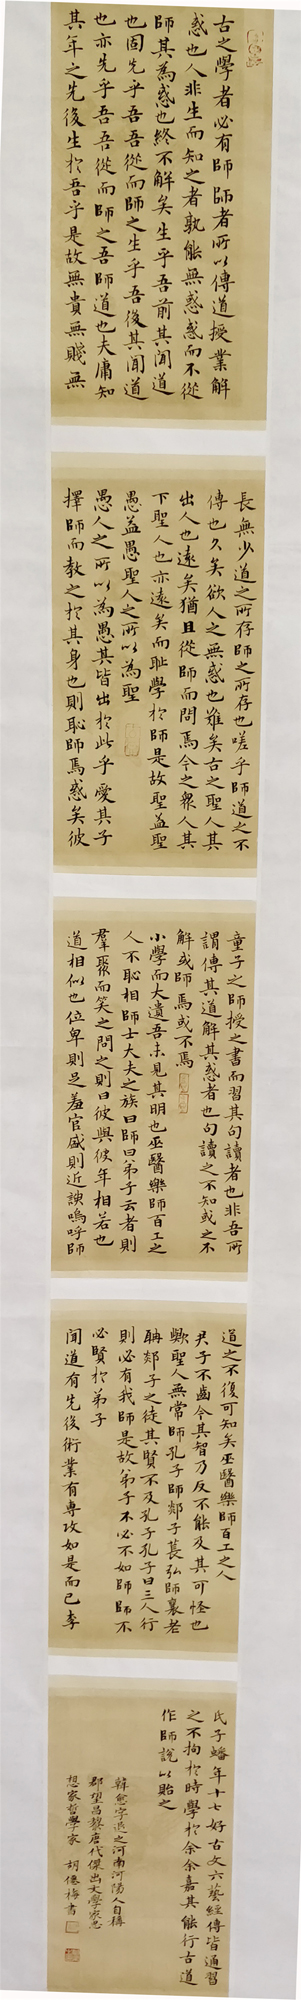 古之學者必有師師者所以傳道授業解
惑也人非生而知之者孰能無惑惑而不從
師其為惑也終不解矣生乎吾前其聞道
也固先乎吾吾從而師之生乎吾後其聞道
也亦先乎吾吾從而師之吾師道也夫庸知
其年之先後生於吾乎是故無貴無賤無
長無少道之所存師之所存也嗟乎師道之不
傳也久矣欲人之無惑也難矣古之聖人其
出人也遠矣猶且從師而問焉今之衆人其
下聖人也亦遠矣而耻學於師是故聖益聖
愚益愚聖人之所以為聖
愚人之所以為愚其皆出於此乎愛其子
擇師而教之於其身也則恥師焉惑矣彼
童子之師授之書而習其句讀者也非吾所
謂傳其道解其惑者也句讀之不知或之不
解或師焉或不焉
小學而大遺吾未見其明也巫醫樂師百工之
人不恥相師士大夫之族曰師曰弟子云者則
羣聚而笑之問之則曰彼與彼年相若也
道相似也位卑則足羞官盛則近諛嗚呼師
道之不復可知矣巫醫樂師百工之人
君子不齒今其智乃反不能及其可怪也
歟聖人無常師孔子師郯子萇弘師襄老
聃郯子之徒其賢不及孔子孔子曰三人行
則必有我師是故弟子不必不如師師不
必賢於弟子
聞道有先後術業有專攻如是而已李
氏子蟠年十七好古文六藝經傳皆通習
之不拘於時學於余余嘉其能行古道
作師說以貽之
韓愈字退之河南河陽人自稱
郡望昌黎唐代傑出文學家思
想家哲學家 胡德梅書